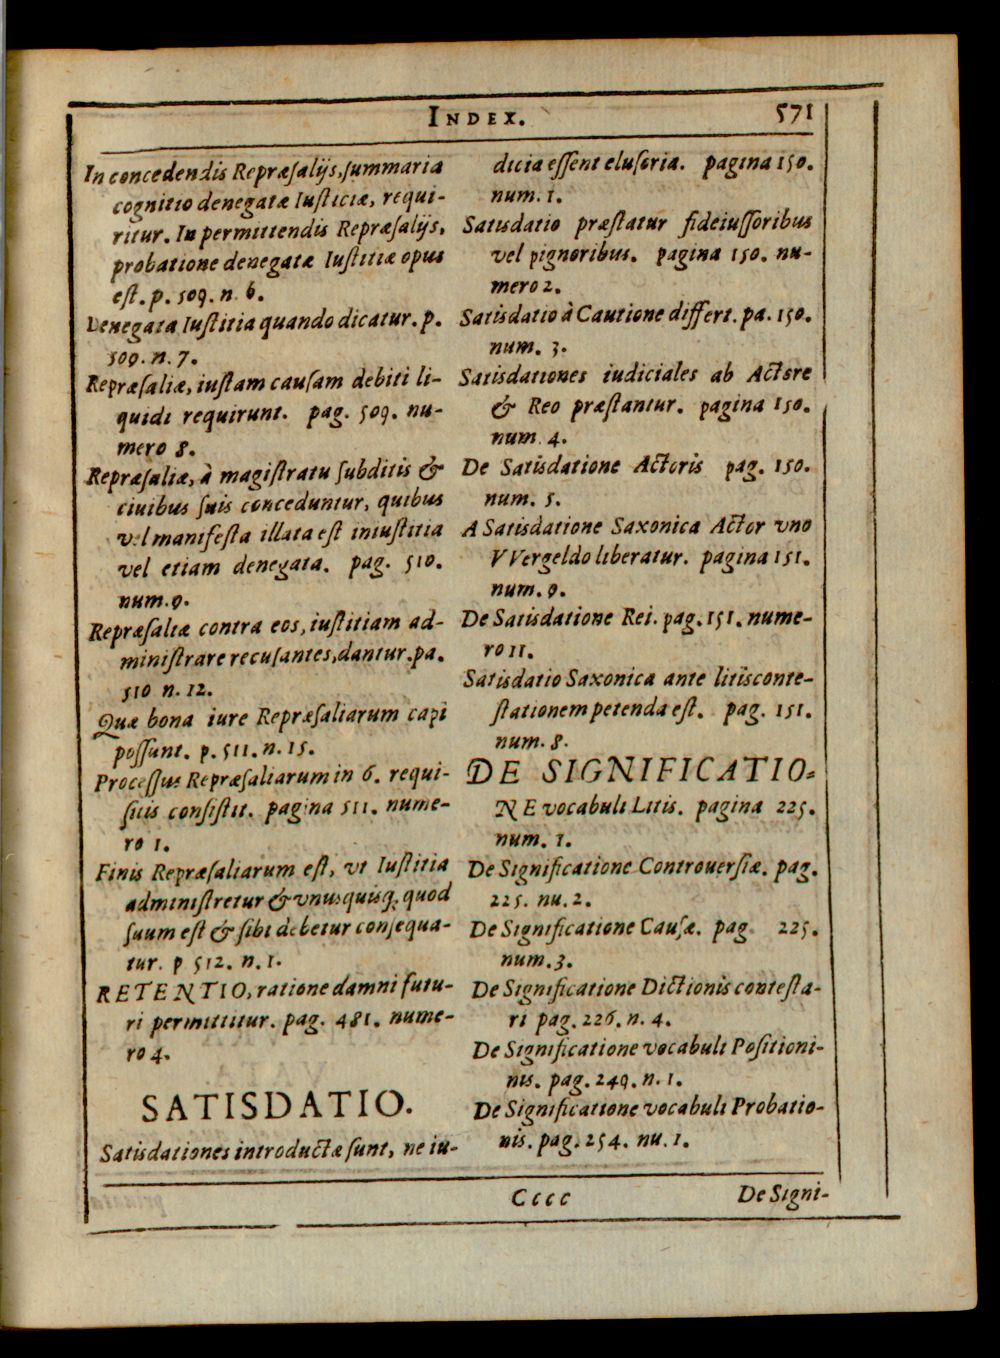 INDEX. 571
In concedendis Repræſalijs, ſummaria
cognitio denegatæ Iuſticiæ, requi-
ritur. In permittendis Repræſalijs,
probatione denegatæ Iuſtitiæ opus
eſt. p. 509. n. 6.
Denegata Iuſtitia quando dicatur. p.
509. n. 7.
Repræſaliæ, iuſtam cauſam debiti li-
quidi requirunt. pag. 509. nu-
mero 8.
Repræſaliæ, à magiſtratu ſubditis &
ciuibus ſuis conceduntur, quibus
vel manifeſta illata eſt iniuſtitia
vel etiam denegata. pag. 510.
num. 9.
Repræſaliæ contra eos, iuſtitiam ad-
miniſtrare recuſantes, dantur. pa.
510 n. 12.
Quæ bona iure Repræſaliarum capi
poſſunt. p. 511. n. 15.
Proceſſus Repræſaliarum in 6. requi-
ſitis conſiſtit. pagina 511. nume-
ro 1.
Finis Repræſaliarum eſt, vt Iuſtitia
adminiſtretur & vnusquisq; quod
ſuum eſt & ſibi debetur conſequa-
tur. p 512. n. 1.
RETENTIO, ratione damni futu-
ri permittitur. pag. 481. nume-
ro 4.
SATISDATIO.
Satisdationes introductæ ſunt, ne iu-
dicia eſſent eluſoria. pagina 150.
num. 1.
Satisdatio præſtatur fideiuſſoribus
vel pignoribus. pagina 150. nu-
mero 2.
Satisdatio à Cautione differt. pa. 150.
num. 3.
Satisdationes iudiciales ab Actore
& Reo præſtantur. pagina 150.
num. 4.
De Satisdatione Actoris pag. 150.
num. 5.
A Satisdatione Saxonica Actor vno
VVergeldo liberatur. pagina 151.
num. 9.
De Satisdatione Rei. pag. 151. nume-
ro 11.
Satisdatio Saxonica ante litisconte-
ſtationem petenda eſt. pag. 151.
num. 8.
DE SIGNIFICATIO-
NE vocabuli Litis. pagina 225.
num. 1.
De Significatione Controuerſiæ. pag.
225. nu. 2.
De Significatione Cauſæ. pag 225.
num. 3.
De Significatione Dictionis conteſta-
ri pag. 226. n. 4.
De Significatione vocabuli Poſitioni-
nis. pag. 249. n. 1.
De Significatione vocabuli Probatio-
nis. pag. 254. nu. 1.
Cccc De Signi-